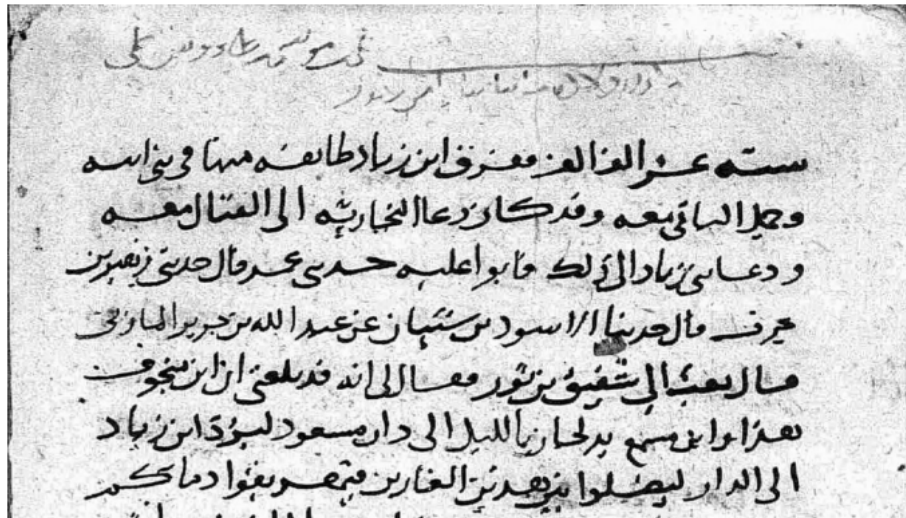 ستة عشر الف الف ففرق ابن زياد طايفة منها في بني ابيه
وحمل الباقي معه وقد كان دعا البخارية الى القتال معه
ودعا بني زياد الى ذلك فابوا عليه حدثني عمر قال حدثني زهير بن
حرب قال حدثنا الاسود بن شيبان عن عبد الله بن جرير المازني
قال بعث الي شقيق بن ثور فقال لي انه قد بلغني ان ابن منجوف
هذا وابن مسمع يدلجان بالليل الى دار مسعود ليردا ابن زياد
الى الدار ليصلوا بين هذين الغارين فيهريقوا دماكم